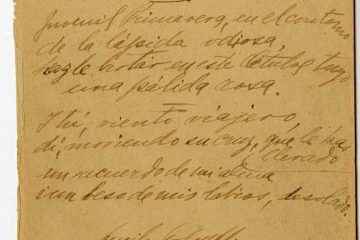 Juvenil Primavera, en el contorno
de la lápida odiosa,
hazle brotar en este túmulo
una pálida rosa.
I tú, viento viajero,
di, moviendo su cruz, que le has
llevado
un recuerdo de mi alma
i un beso de mis labios, desolado.